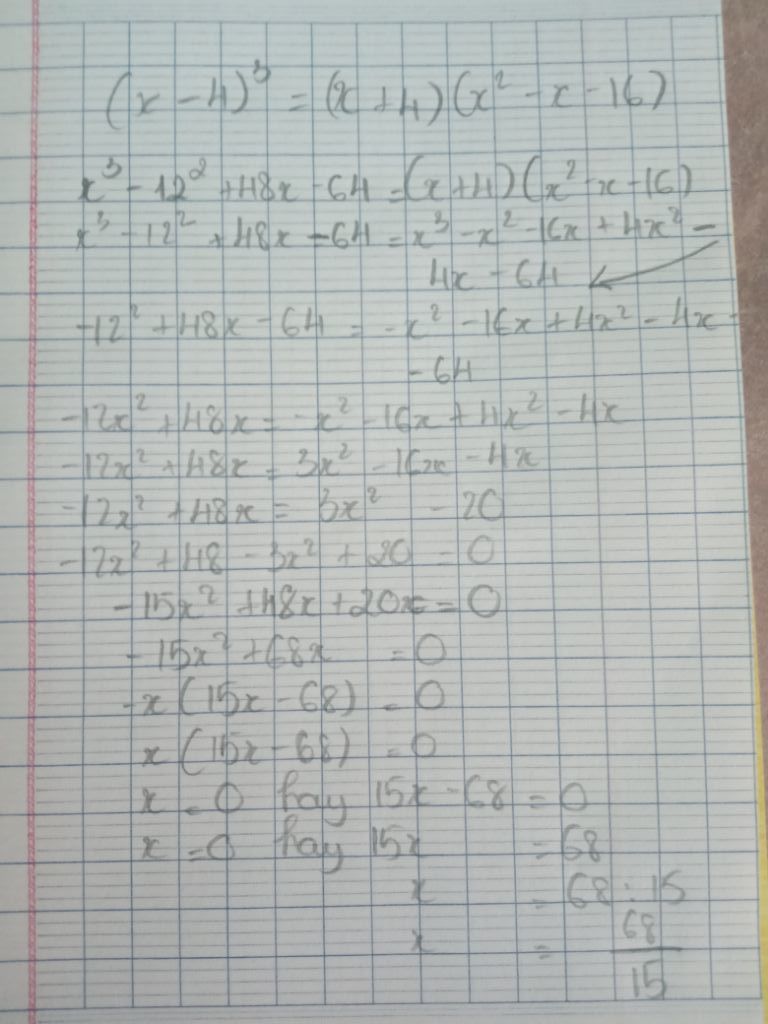 (x - 4)³ = (x + 4)(x² - x - 16)
x³ - 12² + 48x - 64 = (x + 4)(x² - x - 16)
x³ - 12² + 48x - 64 = x³ - x² - 16x + 4x² -
4x - 64
-12² + 48x - 64 = -x² - 16x + 4x² - 4x -
- 64
-12x² + 48x = -x² - 16x + 4x² - 4x
-12x² + 48x = 3x² - 16x - 4x
-12x² + 48x = 3x² - 20
-12x² + 48 - 3x² + 20 = 0
-15x² + 48x + 20x = 0
-15x² + 68x = 0
-x(15x - 68) = 0
x(15x - 68) = 0
x = 0 hay 15x - 68 = 0
x = 0 hay 15x = 68
x = 68 : 15
x = 68/15